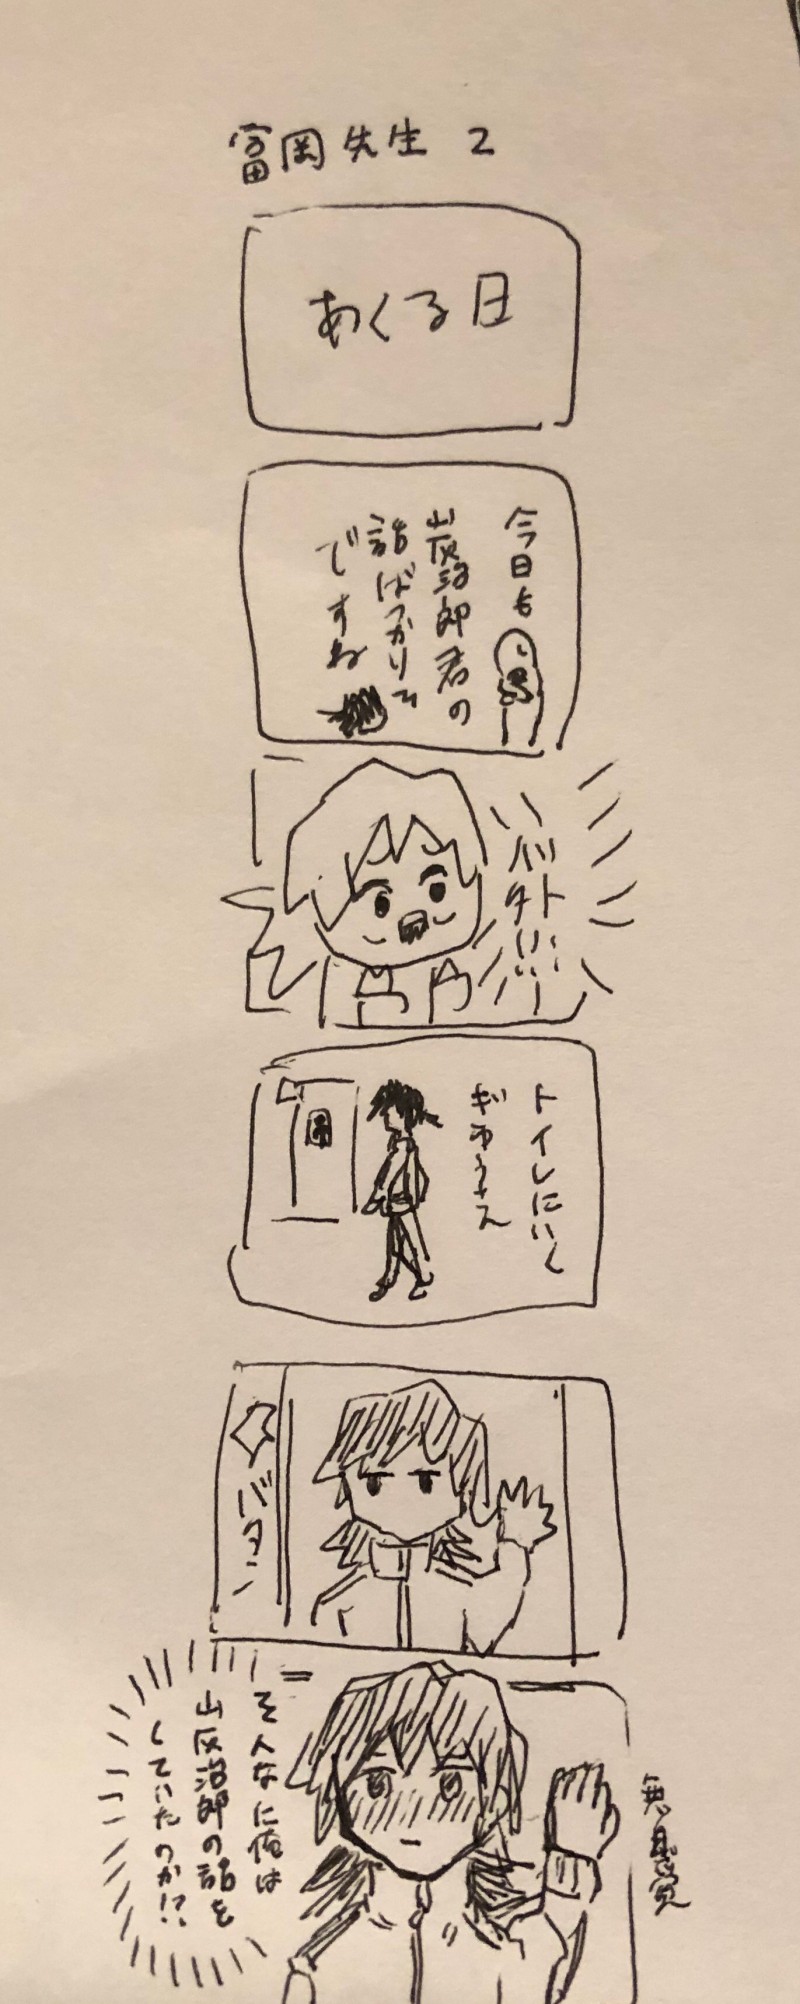 富岡先生 2
あくる日
今日も
炭治郎君の
話ばっかり
ですね
バッ
トイレにいく
ぎゆうさん
バタン
そんなに俺は
炭治郎の話を
していたのか!?
無自覚